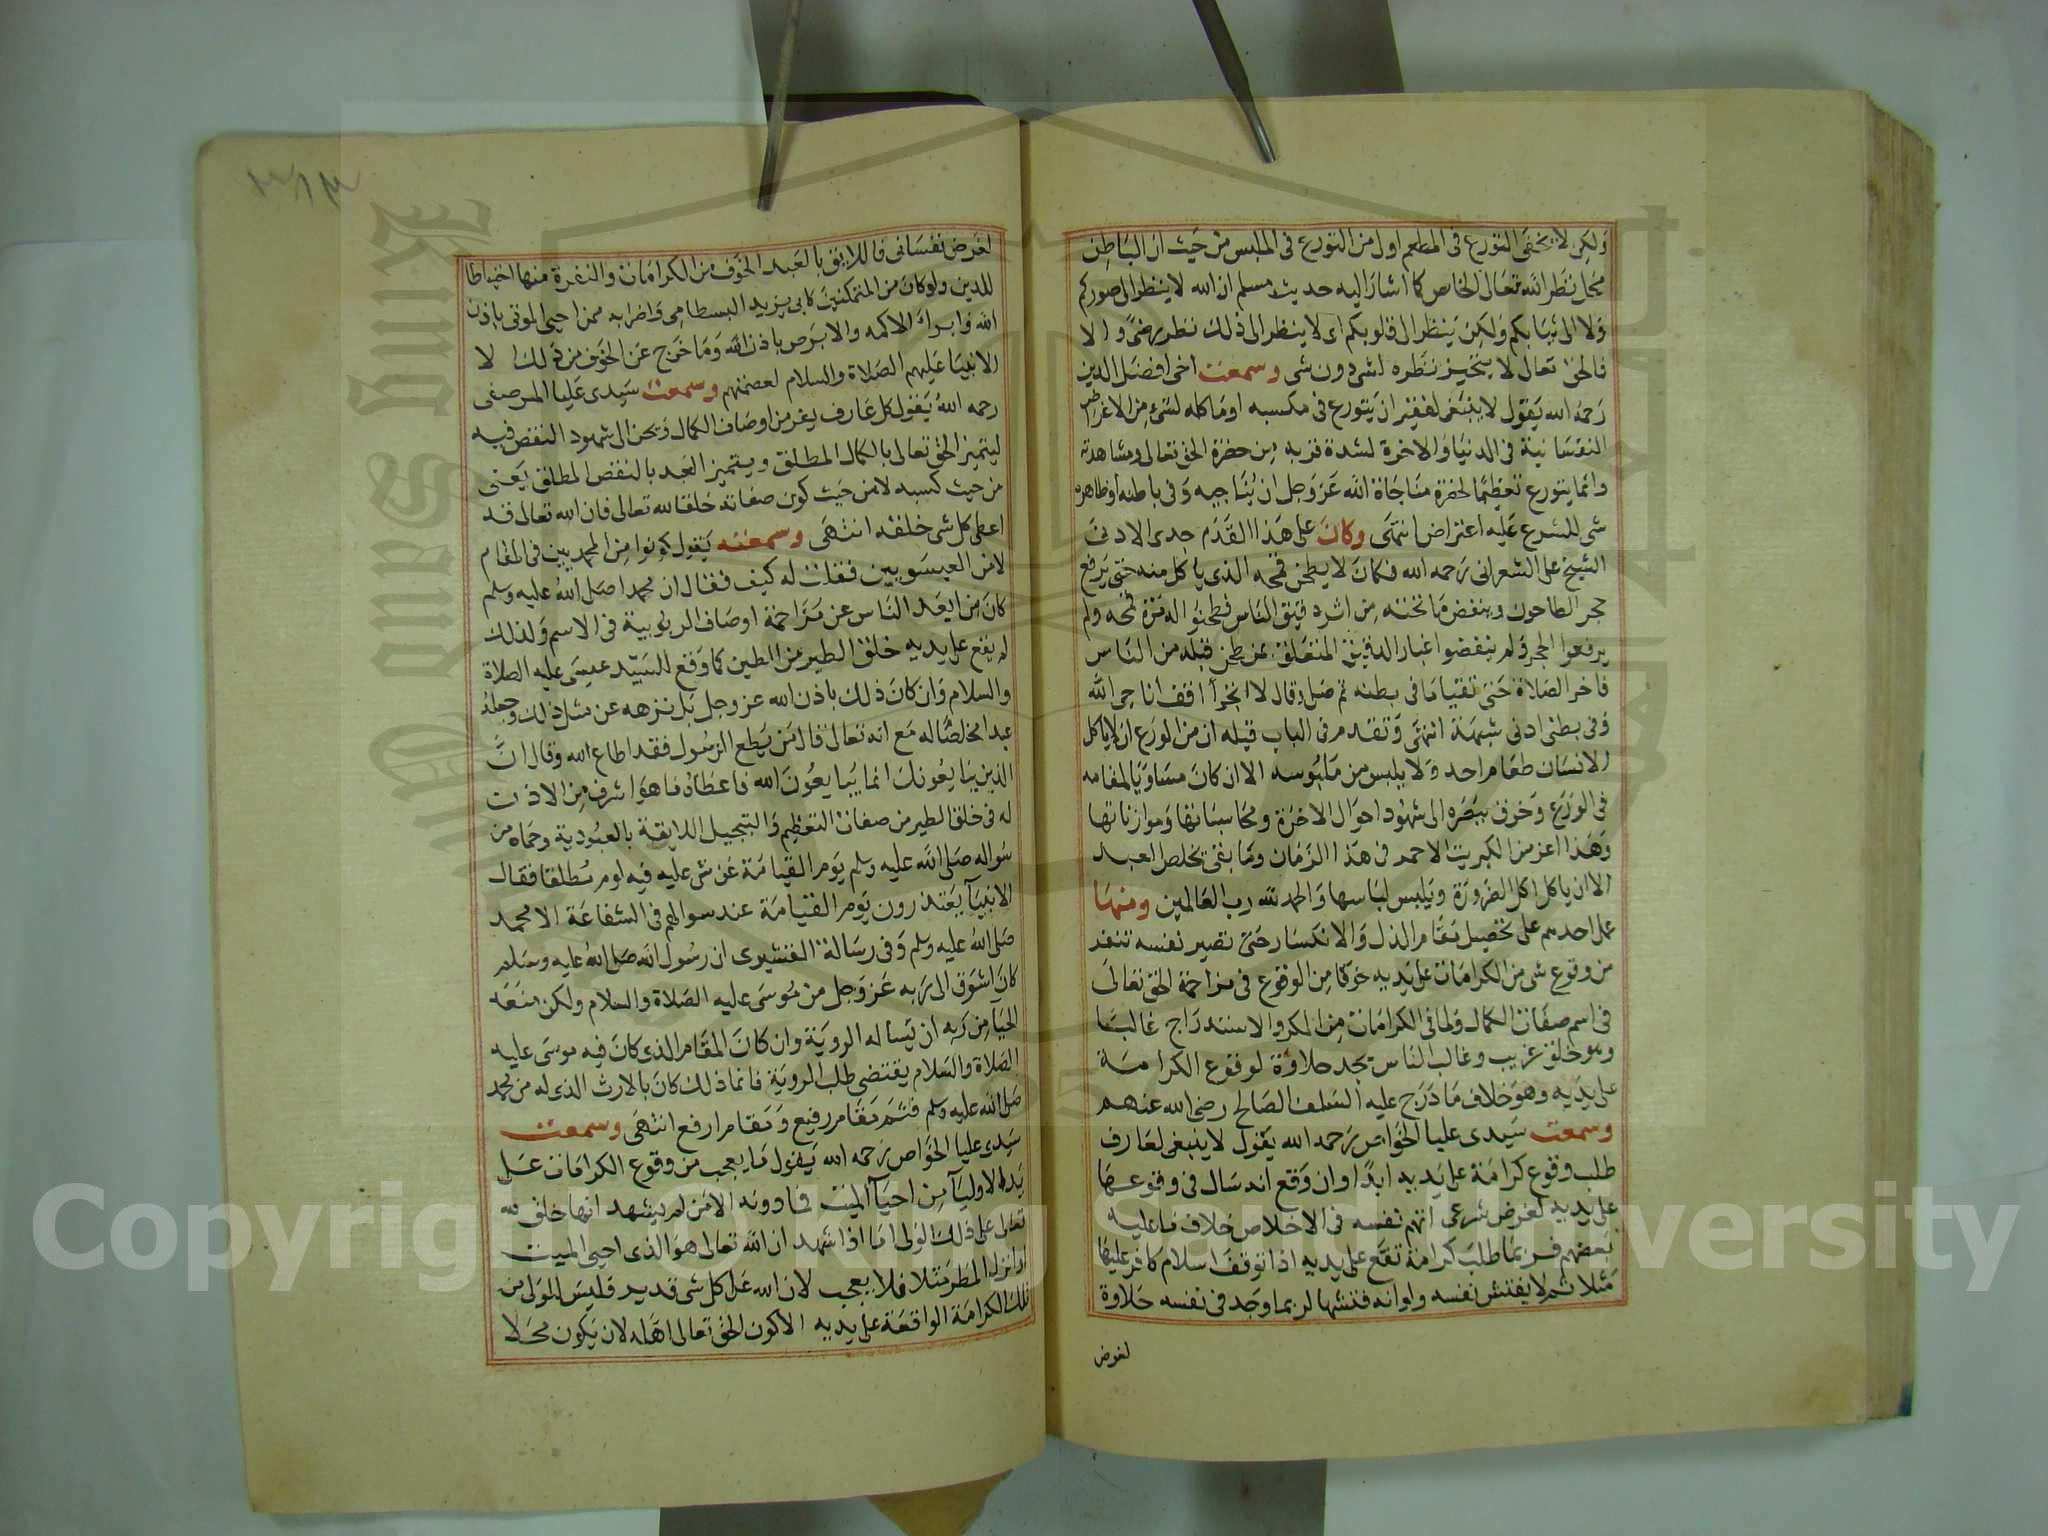 ولكن لا يخفى التورع في المطعم اولى من التورع في الملبس من حيث ان الباطن
محل نظر الله تعالى الخاص كما اشار اليه حديث مسلم ان الله لا ينظر الى صوركم
ولا الى ثيابكم ولكن ينظر الى قلوبكم اى لا ينظر الى ذلك نظر رضى والا
فالحق تعالى لا يتحيز نظره لشى دون شى وسمعت اخى افضل الدين
رحمه الله يقول لا ينبغى لفقير ان يتورع فى مكسبه او ماكله لشئ من الاغراض
النفسانية فى الدنيا والاخرة لشدة قربه من حضرة الحق تعالى ومشاهدته
وانما يتورع تعظيما لحضرة مناجاة الله عز وجل ان يناجيه وفى باطنه او ظاهره
شى للشرع عليه اعتراض انتهى وكان على هذا القدم جدى الادنى
الشيخ على الشعرانى رحمه الله فكان لا يطحن قمحه الذى ياكل منه حتى يرفع
حجر الطاحون وينفض ما تحته من اثر دقيق الناس فطحنوا له مرة قمحه ولم
يرفعوا الحجر ولم ينفضوا غبار الدقيق المتعلق عن طحن قبله من الناس
فاخر الصلاة حتى تقيا ما فى بطنه ثم صلى وقال لا اتجرأ اقف انا حى الله
وفى بطنى ادنى شبهة انتهى وتقدم فى الباب قبله ان من الورع ان لا ياكل
الانسان طعام احد ولا يلبس من ملبوسه الا ان كان مساويا لمقامه
فى الورع وخرق ببصره الى شهود احوال الاخرة ومحاسباتها وموازناتها
وهذا اعز من الكبريت الاحمر فى هذا الزمان وما بقى تخلص العبد
الا ان ياكل اكل الضرورة ويلبس لباسها والحمد لله رب العالمين ومنها
عمل احدهم على تحصيل مقام الذل والانكسار حتى تصير نفسه تنفر
من وقوع شى من الكرامات على يديه خوفا من الوقوع فى مزاحمة الحق تعالى
فى اسم صفات الكمال ولما فى الكرامات من المكر والاستدراج غالبا
وهو خلق غريب وغالب الناس يجد حلاوة لوقوع الكرامة
على يديه وهو خلاف ما درج عليه السلف الصالح رضى الله عنهم
وسمعت سيدى عليا الخواص رحمه الله يقول لا ينبغى لعارف
طلب وقوع كرامة على يديه ابدا وان وقع انه سال فى وقوعها
على يديه لغرض شرعى اتهم نفسه فى الاخلاص خلاف ما عليه
بعضهم فربما طلب كرامة تقع على يديه اذا توقف اسلام كافر عليها
مثلا ثم لا يفتش نفسه ولو انه فتشها لربما وجد فى نفسه حلاوة
لغرض
لغرض نفسانى فاللايق بالعبد الخوف من الكرامات والنفرة منها احتياطا
للدين ولو كان من المتمكنين كابى يزيد البسطامى واضرابه ممن احيى الموتى باذن
الله وابراء الاكمه والابرص باذن الله وما خرج عن الخوف من ذلك الا
الانبيا عليهم الصلاة والسلام لعصمتهم وسمعت سيدى عليا المرصفى
رحمه الله يقول كل عارف يفر من اوصاف الكمال ويحن الى شهود النقص فيه
ليتميز الحق تعالى بالكمال المطلق ويتميز العبد بالنقص المطلق يعنى
من حيث كسبه لا من حيث كون صفاته خلقا لله تعالى فان الله تعالى قد
اعطى كل شى خلقه انتهى وسمعته يقول كونوا من المحمديين فى المقام
لا من العيسويين فقلت له كيف فقال ان محمدا صلى الله عليه وسلم
كان من ابعد الناس عن مزاحمة اوصاف الربوبية فى الاسم ولذلك
لم يقع على يديه خلق الطير من الطين كما وقع للسيد عيسى عليه الصلاة
والسلام وان كان ذلك باذن الله عز وجل بل نزهه عن مثل ذلك وجعله
عبدا مخلصا له مع انه تعالى قال من يطع الرسول فقد اطاع الله وقال ان
الذين يبايعونك انما يبايعون الله فاعطاه ما هو اشرف من الاذن
له فى خلق الطير من صفات التعظيم والتبجيل اللايقة بالعبودية وحماه من
سواله صلى الله عليه وسلم يوم القيامة عن شى عليه فيه لوم مطلقا فقال
الانبيآ يعتذرون يوم القيامة عند سوالهم فى الشفاعة الا محمد
صلى الله عليه وسلم وفى رسالة القشيرى ان رسول الله صلى الله عليه وسلم
كان اشوق الى ربه عز وجل من موسى عليه الصلاة والسلام ولكن منعه
الحيا من ربه ان يساله الروية وان كان المقام الذى كان فيه موسى عليه
الصلاة والسلام يقتضى طلب الروية فانما ذلك كان بالارث الذى له من محمد
صلى الله عليه وسلم فثم مقام رفيع ومقام ارفع انتهى وسمعت
سيدى عليا الخواص رحمه الله يقول ما يعجب من وقوع الكرامات على
يد الاوليآ من احيآ الميت فما دونه الا من لم يشهد انها خلق لله
تعالى على ذلك الولى اما اذا شهد ان الله تعالى هو الذى احيى الميت
او انزل المطر مثلا فلا يعجب لان الله على كل شى قدير فليس للولى من
تلك الكرامة الواقعة على يديه الا كون الحق تعالى اهله لان يكون محلا
Copyright © King Saud University